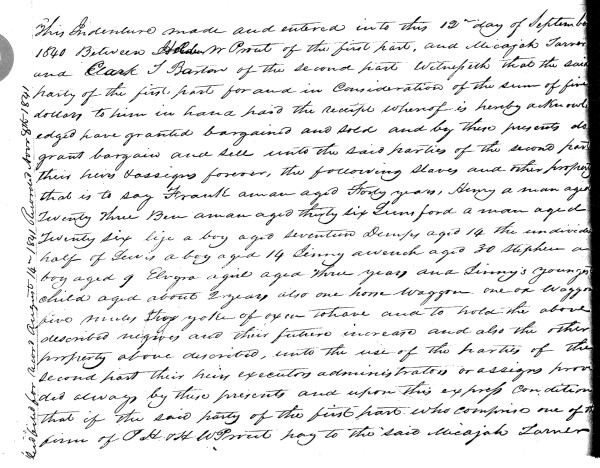 This Indenture made and entered into this 12th day of September
1840 Between W Prout of the first part, and Micajah Tarner
and Clark T Barton of the second part Witnesseth that the said
party of the first part for and in Consideration of the sum of five
dollars to him in hand paid the receipt whereof is hereby acknowl
edged have granted bargained and sold and by these presents do
grant bargain and sell unto the said parties of the second part
their heirs & assigns forever, the following slaves and other property
that is to say Frank a man aged Forty years, Henry a man aged
Twenty three Ben a man aged thirty six Lunsford a man aged
Twenty six a boy aged seventeen Demps aged 14 the undivided
half of Lewis a boy aged 14 Linny a wench aged 30 Stephen a
boy aged 9 Elvyra a girl aged three years and Linny's youngest
child aged about 2 years also one horse Waggon one ox Waggon
five mules two yoke of oxen to have and to hold the above
described negroes and their future increase and also the other
property above described, unto the use of the parties of the
second part their heirs executors administrators or assigns prov
ided always by these presents and upon this express condition
that if the said party of the first part who comprise one of the
firm of P H & H W Prout pay to the said Micajah Tarner
for record August 14th 1841 Recorded Novr 8th 1841